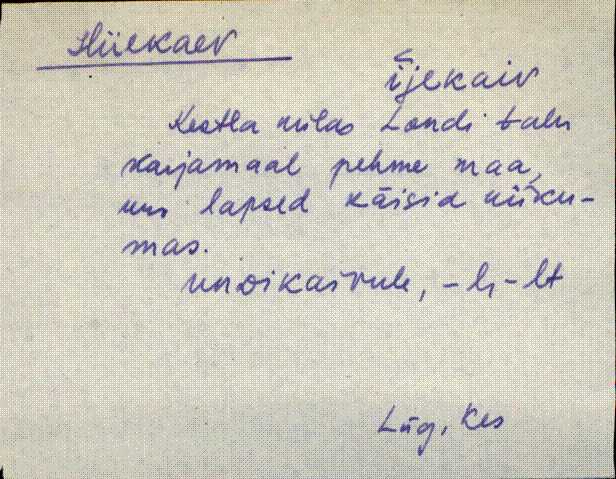 Hiiekaev
ījekaiv
Kestla külas Londi talu
karjamaal pehme maa,
kus lapsed käisid kiiku-
mas.
kaivule, -l, -lt
Lüg, Kes